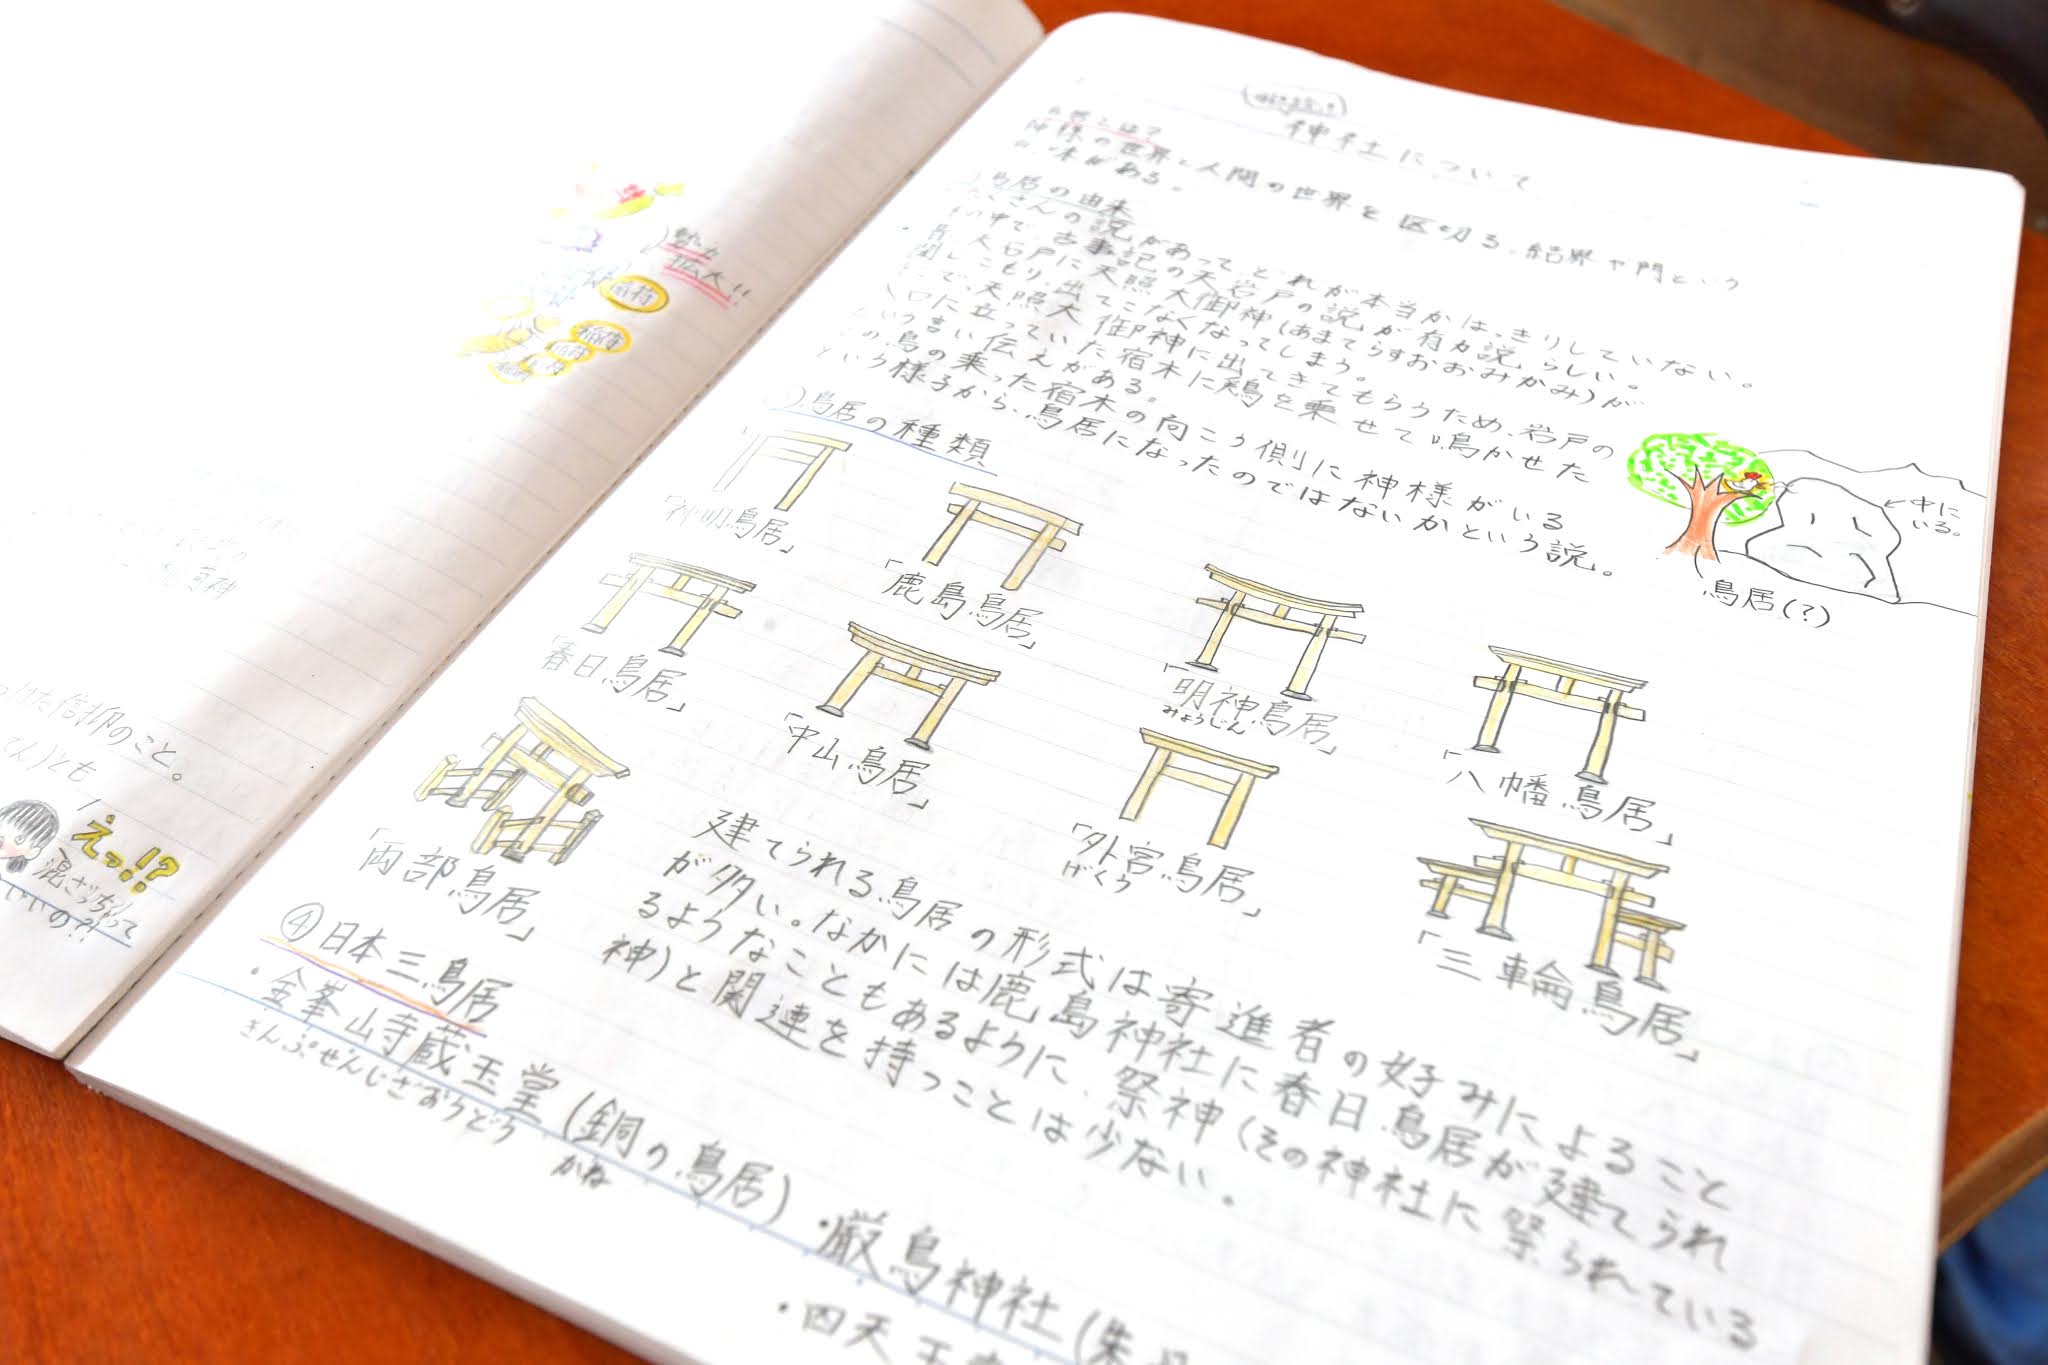 勢力
拡大!!
招待
招待
った信仰のこと。
てん)とも
えっ!?
混ざっちゃって
いいの?!
解説!
神社について
鳥居とは?
神様の世界と人間の世界を区切る、結界や門という
意味がある。
鳥居の由来
たくさんの説があって、どれが本当かはっきりしていない。
その中で、古事記の天岩戸の説が有力説らしい。
天石戸に天照大御神(あまてらすおおみかみ)が
閉じこもり、出てこなくなってしまう。
そこで、天照大御神に出てきてもらうため、岩戸の
入口に立っていた宿木に鶏を乗せて鳴かせた
という言い伝えがある。
この鳥の乗った宿木の向こう側に神様がいる
という様子から、鳥居になったのではないかという説。
中に
いる。
鳥居(?)
鳥居の種類
「神明鳥居」
「鹿島鳥居」
「春日鳥居」
「中山鳥居」
「明神鳥居」
みょうじん
「八幡鳥居」
「両部鳥居」
「外宮鳥居」
げくう
「三輪鳥居」
建てられる鳥居の形式は寄進者の好みによること
が多い。なかには鹿島神社に春日鳥居が建てられ
るようなこともあるように、祭神(その神社に祭られている
神)と関連を持つことは少ない。
④日本三鳥居
・金峯山寺蔵王堂(銅の鳥居)・厳島神社(朱丹
きんぷせんじざおうどう かね
・四天王